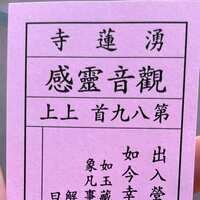 湧蓮寺
觀音靈感
第八九首 上上
出入營
如今幸
如玉藏
象凡事
解